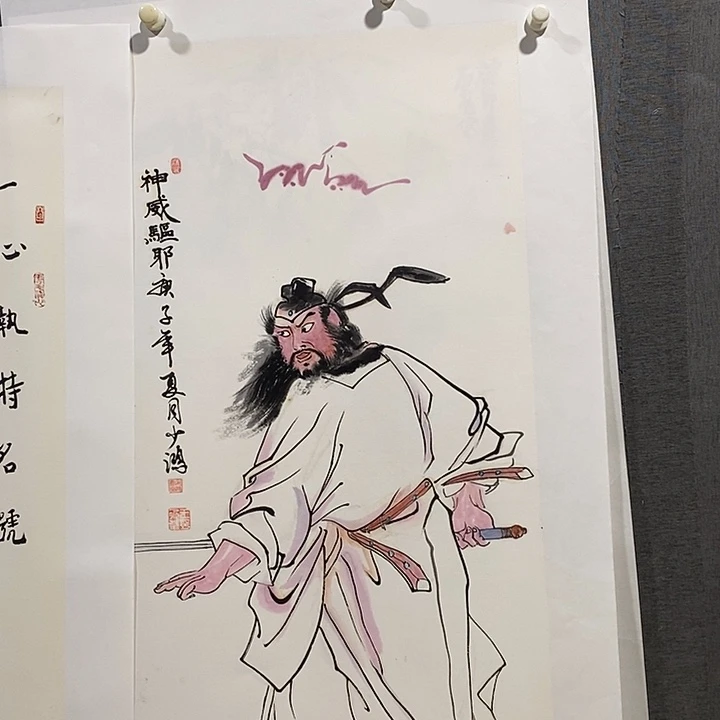 神威驅耶庚子年夏月少鴻
一心執特名號